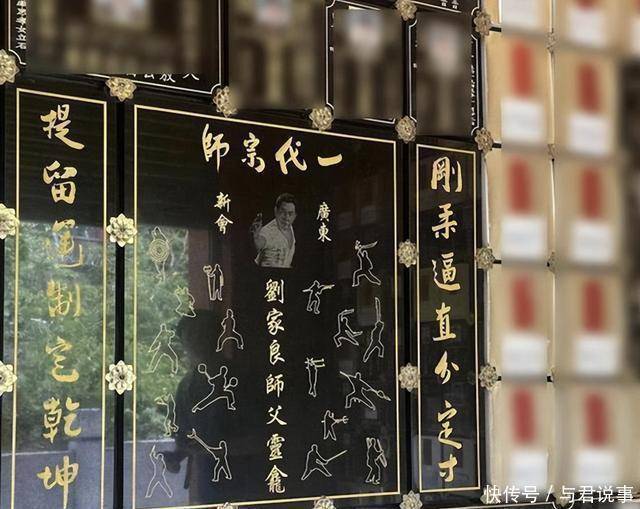 一代宗師
剛柔逼直分定寸
廣東
新會
劉家良師父靈龕
提留運制定乾坤
快传号/与君说事